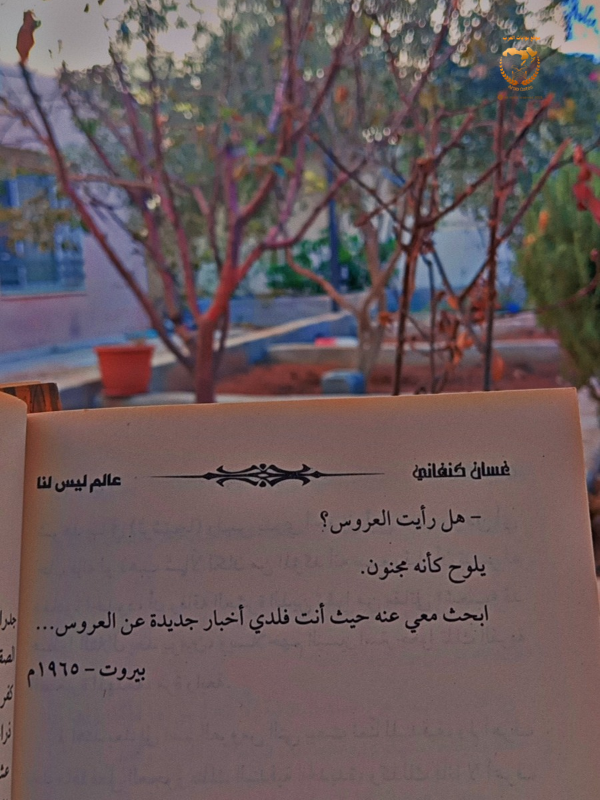 غسان كنفاني
عالم ليس لنا
– هل رأيت العروس؟
يلوح كأنه مجنون.
ابحث معي عنه حيث أنت فلدي أخبار جديدة عن العروس...
بيروت – ١٩٦٥م